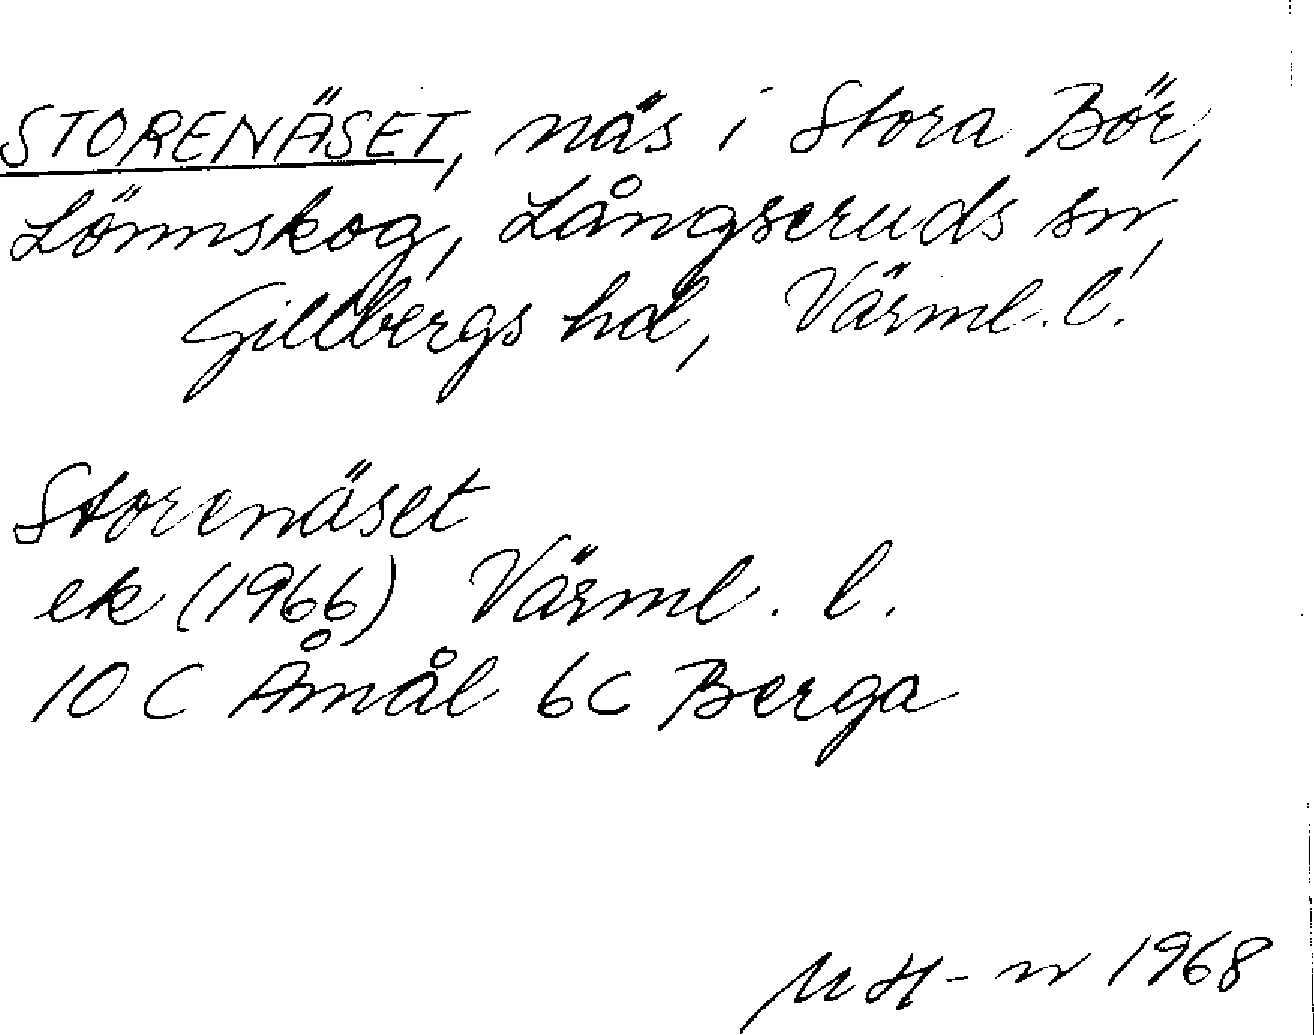 STORENÄSET, näs i Stora Bör,
Lönnskog, Långseruds sn,
Gillbergs hd, Värml. l.
Storenäset
ek (1966) Värml. l.
10 C Åmål 6c Berga
MH-n 1968